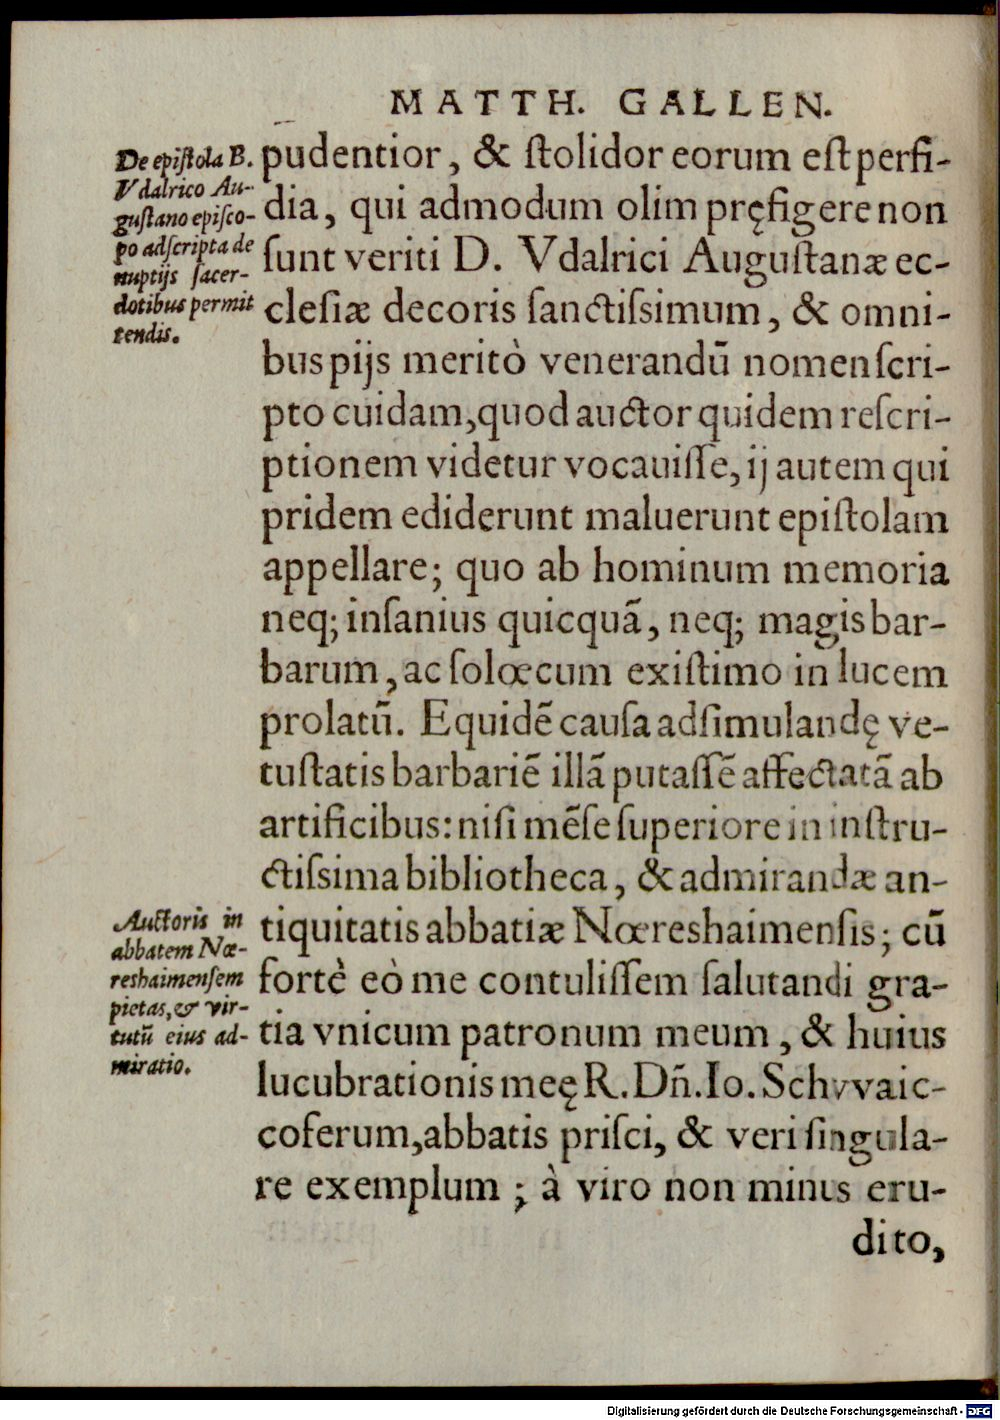 MATTH. GALLEN.
De epiſtola B.
Vdalrico Au-
guſtano epiſco-
po adſcripta de
nuptijs ſacer-
dotibus permit
tendis.
pudentior, & ſtolidor eorum eſt perfi-
dia, qui admodum olim pręfigere non
ſunt veriti D. Vdalrici Auguſtanæ ec-
cleſiæ decoris ſanctiſsimum, & omni-
bus pijs meritò venerandũ nomen ſcri-
pto cuidam, quod auctor quidem reſcri-
ptionem videtur vocauiſſe, ij autem qui
pridem ediderunt maluerunt epiſtolam
appellare; quo ab hominum memoria
neq; inſanius quicquã, neq; magis bar-
barum, ac ſolœcum exiſtimo in lucem
prolatũ. Equidẽ cauſa adſimulandę ve-
tuſtatis barbariẽ illã putaſſẽ affectatã ab
artificibus: niſi mẽſe ſuperiore in inſtru-
ctiſsima bibliotheca, & admirandæ an-
tiquitatis abbatiæ Nœreshaimenſis; cũ
fortè eò me contuliſſem ſalutandi gra-
tia vnicum patronum meum, & huius
lucubrationis meę R. Dñ. Io. Schvvaic-
coferum, abbatis priſci, & veri ſingula-
re exemplum; à viro non minus eru-
dito,
Auctoris in
abbatem Nœ-
reshaimenſem
pietas, & vir-
tutũ eius ad-
miratio.
Digitalisierung gefördert durch die Deutsche Forschungsgemeinschaft - DFG